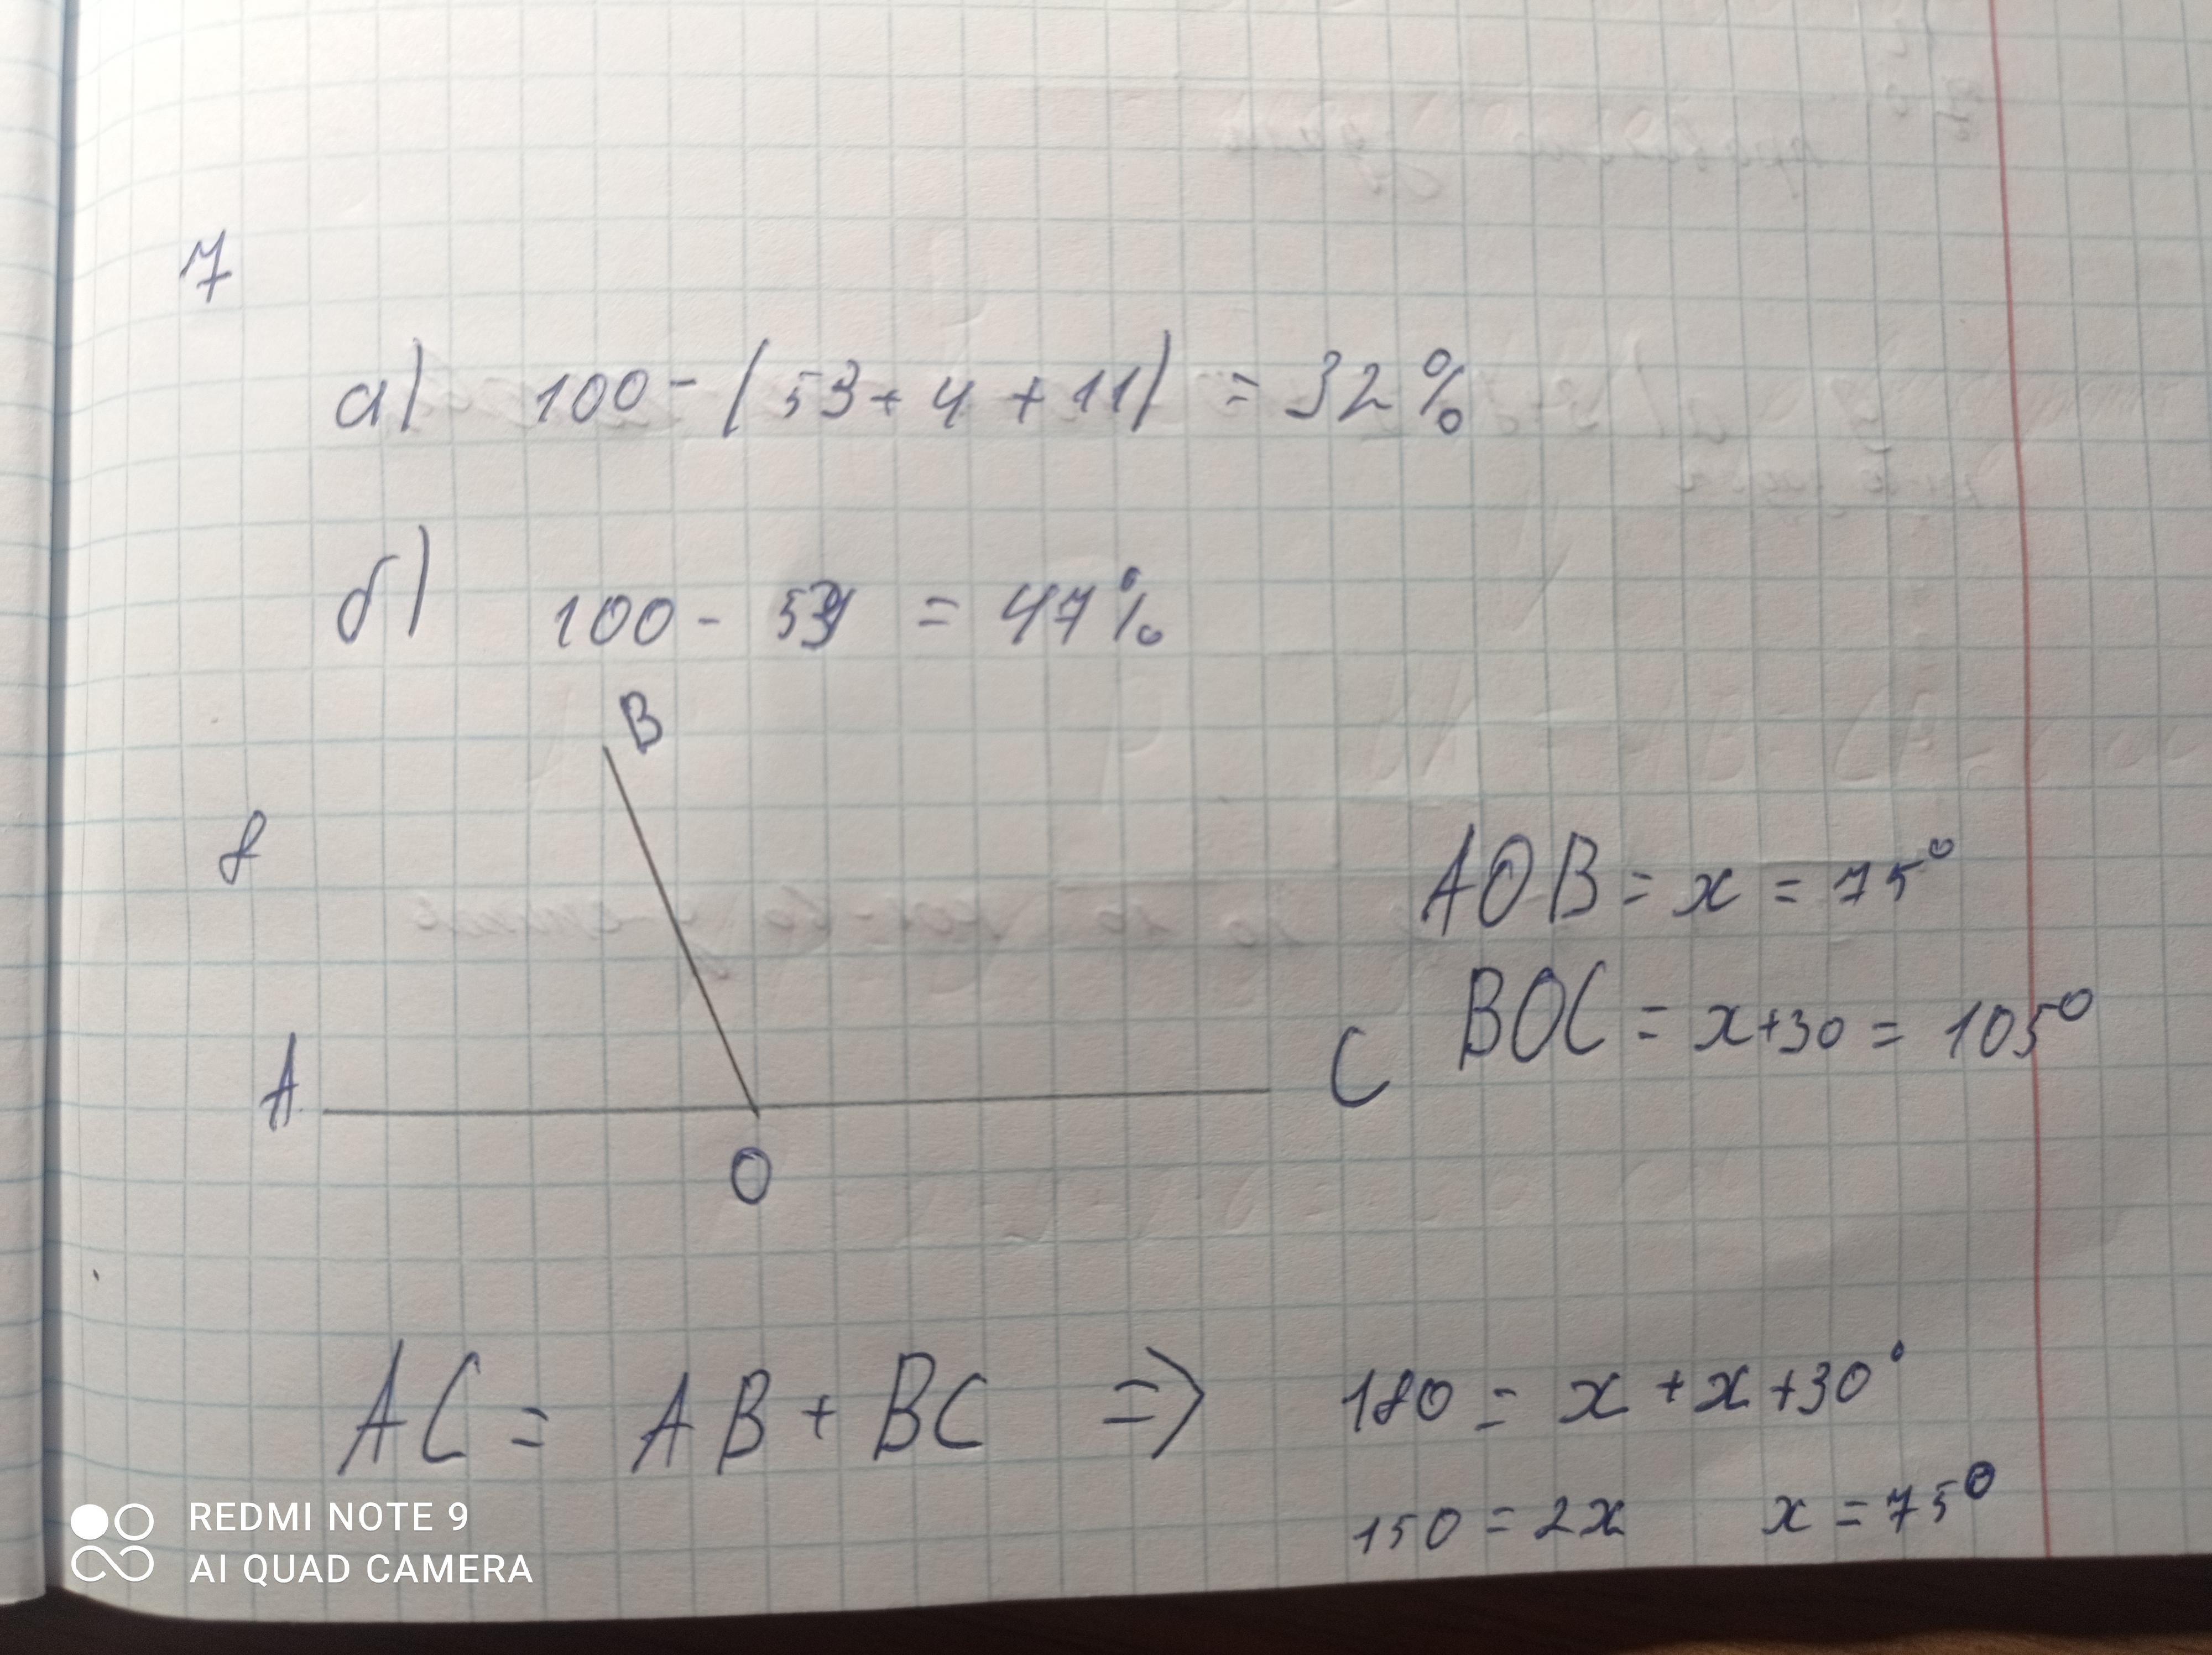 7
а) 100 - (53 + 4 + 11) = 32 %
б) 100 - 53 = 47 %
B
8
AOB = x = 75°
BOC = x+30 = 105°
A
C
O
AC = AB + BC => 180 = x + x + 30°
150 = 2x x = 75°
REDMI NOTE 9
AI QUAD CAMERA